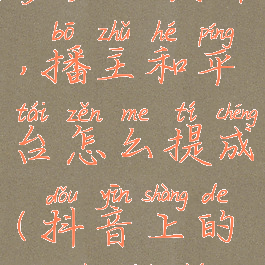 bō zhǔ hé píng
,播主和平
tái zěn me tí chéng
台怎么提成
dǒu yīn shàng de
(抖音上的